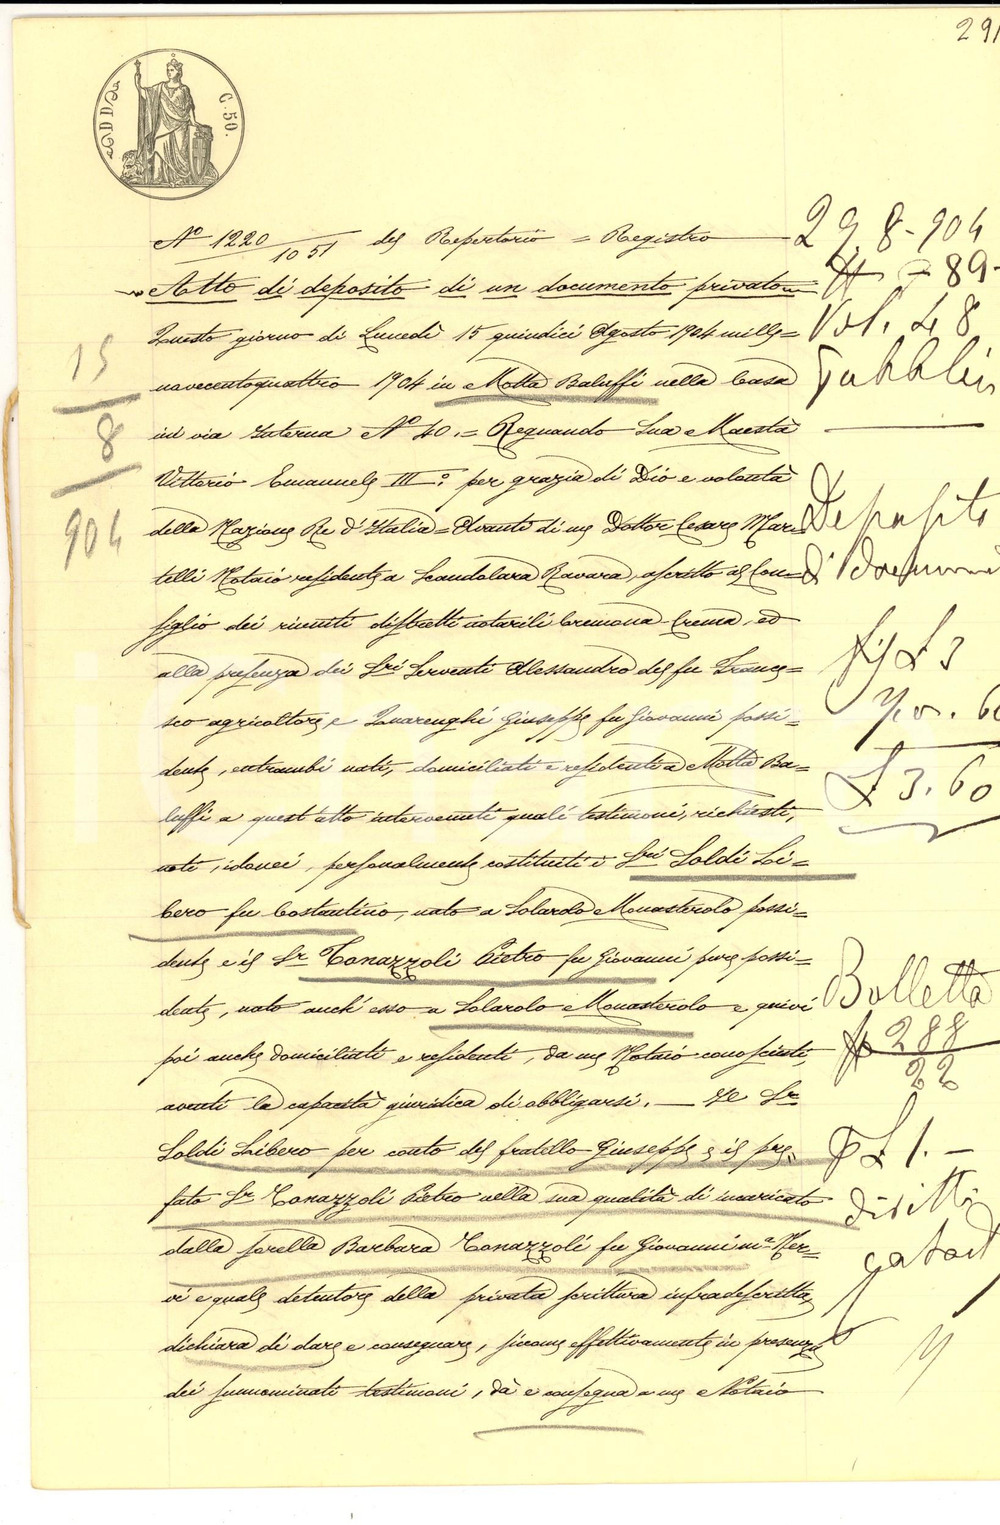 291
C. 50.
Nº 1220/1051 del Repertorio = Registro
Atto di deposito di un documento privato
Questo giorno di Lunedì 15 quindici Agosto 1904 mille=
novecentoquattro 1904 in Motta Baluffi nella Casa
in via Interna Nº 40. = Regnando Sua Maestà
Vittorio Emanuele III.º per grazia di Dio e volontà
della Nazione Re d'Italia = Avanti di me Dottor Cesare Mar=
telli Notaio residente a Scandolara Ravara, ascritto al Con=
siglio dei riuniti distretti notarili Cremona-Crema, ed
alla presenza dei Sri Serventi Alessandro del fu France=
sco agricoltore e Quarenghi Giuseppe fu Giovanni possi=
dente, entrambi nati, domiciliati e residenti a Motta Ba=
luffi a quest'atto intervenuti quali testimoni, richiesti,
noti, idonei, personalmente costituiti i Sri Soldi Li=
bero fu Costantino, nato a Solarolo Monasterolo possi=
dente e il Sr Tonazzoli Pietro fu Giovanni pure possi=
dente, nato anch'esso a Solarolo Monasterolo e quivi
poi anche domiciliati e residenti, da me Notaio conosciuti,
aventi la capacità giuridica di obbligarsi. — Il Sr
Soldi Libero per conto del fratello Giuseppe e il pre=
fato Sr Tonazzoli Pietro nella sua qualità di incaricato
dalla sorella Barbara Tonazzoli fu Giovanni ma Ner=
vi e quale detentore della privata scrittura infradescritta
dichiara di dare e consegnare, siccome effettivamente in presenza
dei sunnominati testimoni, dà e consegna a me Notaio
15
8
904
29 8-904
Nº 89-
Vol. 48
Pubblici
Deposito
di documenti
£ 3
60
£ 3.60
Bolletta
Nº 288
22
£ 1. -
diritti